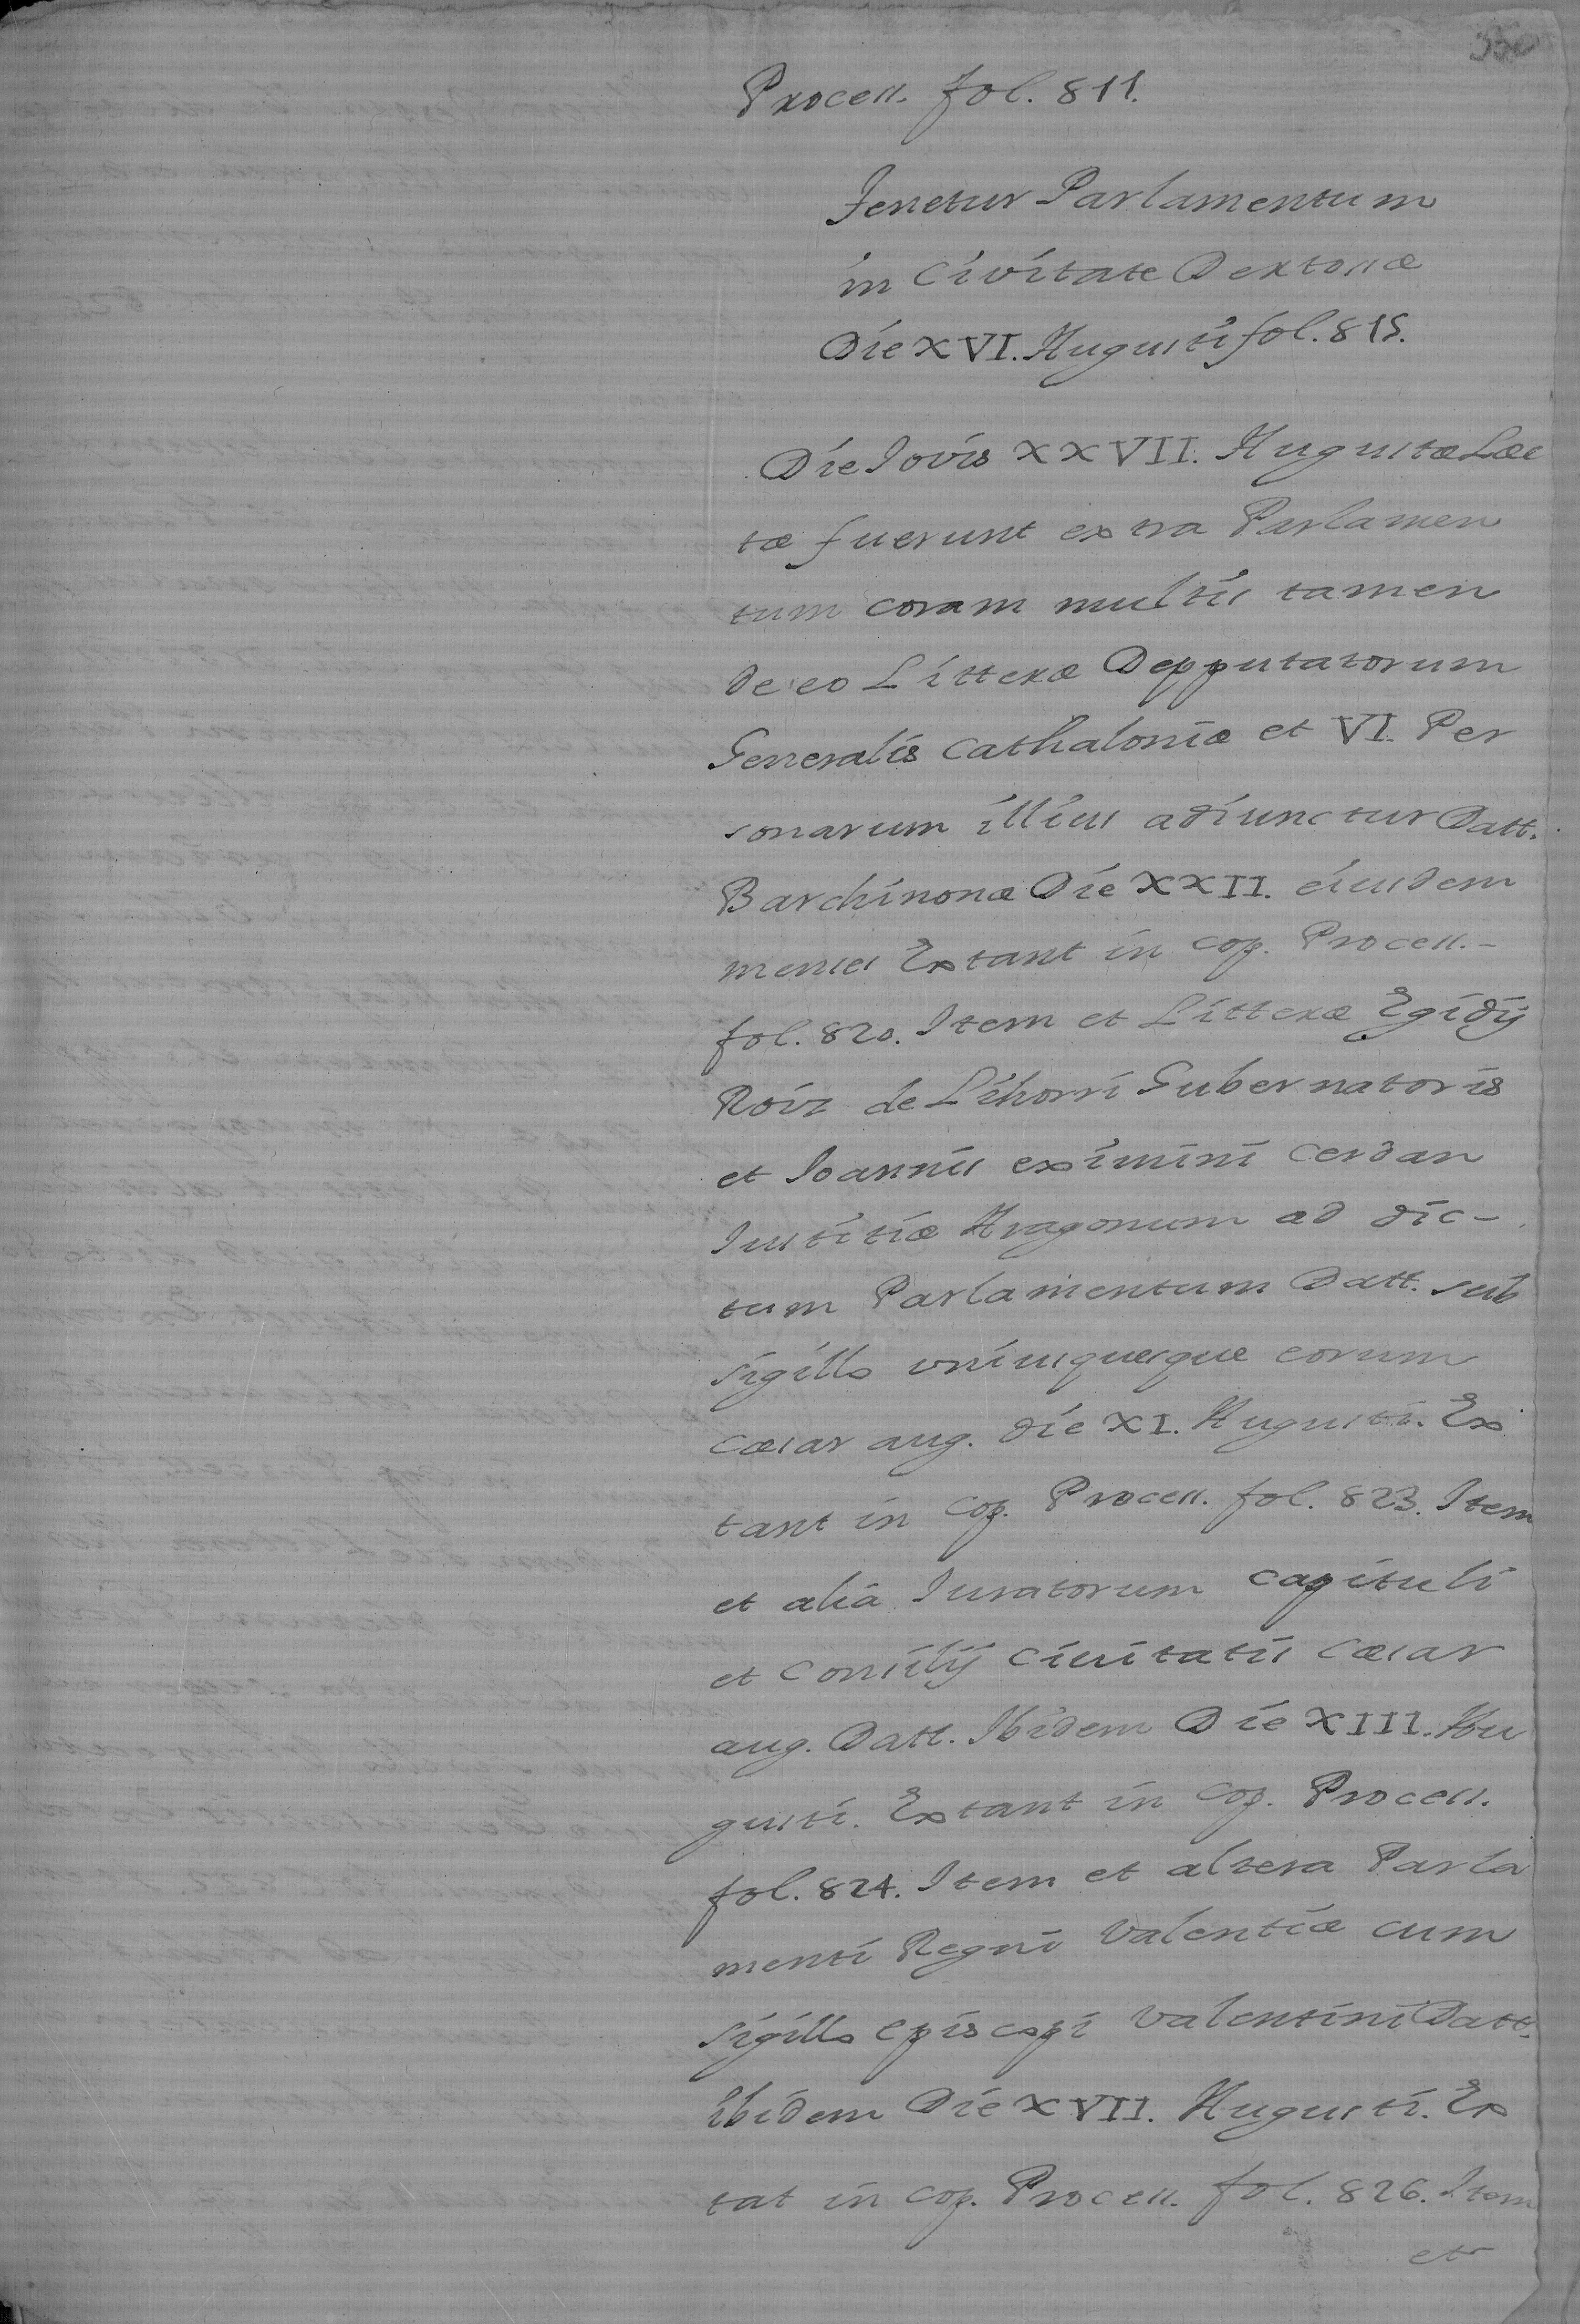 330
Process. fol. 811.
Tenetur Parlamentum
in Civitate Dextosæ
Die XVI. Augusti fol. 815.
Die Jovis XXVII. Augustæ Lec
tæ fuerunt extra Parlamen
tum coram multis tamen
de eo Litteræ Depputatorum
Generalis Cathaloniæ et VI. Per
sonarum illius adiunctur Datt.
Barchinonæ Die XXII. eiusdem
mensis Extant in cop. Process.-
fol. 820. Item et Litteræ Egidij
Roiz de Lihorri Gubernatoris
et Joannis eximini Cerdan
Justitiæ Aragonum ad dic-
tum Parlamentum Datt. sub
sigillo uniusquesque eorum
Cæsar aug. die XI. Augusti. Ex
tant in cop. Process. fol. 823. Item
et alia Juratorum Capituli
et Consilij Civitatis Cæsar
aug. Datt. Ibidem Die XIII. Au
gusti. Extant in cop. Process.
fol. 824. Item et altera Parla
menti Regni Valentiæ cum
sigillo episcopi Valentini Datt.
Ibidem Die XVII. Augusti. Ex
tat in cop. Process. fol. 826. Item
et